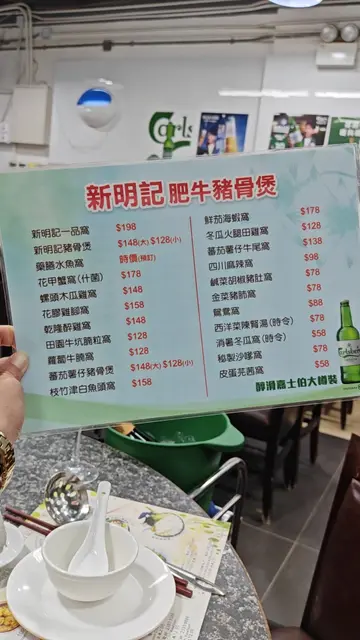 Carls
新明記 肥牛豬骨煲
新明記一品窩 $198
新明記豬骨煲 $148(大) $128(小)
藥膳水魚窩 時價(預訂)
花甲蟹窩(什菌) $178
螺頭木瓜雞窩 $148
花膠雞腳窩 $158
乾隆醉雞窩 $148
田園牛坑腩粒窩 $128
蘿蔔牛腩窩 $128
蕃茄薯仔豬骨煲 $148(大) $128(小)
枝竹津白魚頭窩 $158
鮮茄海蝦窩 $178
冬瓜火腿田雞窩 $128
蕃茄薯仔牛尾窩 $138
四川麻辣窩 $98
鹹菜胡椒豬肚窩 $78
金菜豬肺窩 $78
鴛鴦窩 $88
西洋菜陳腎湯(時令) $78
消暑冬瓜窩(時令) $58
秘製沙嗲窩 $78
皮蛋芫茜窩 $58
醇滑嘉士伯大樽裝